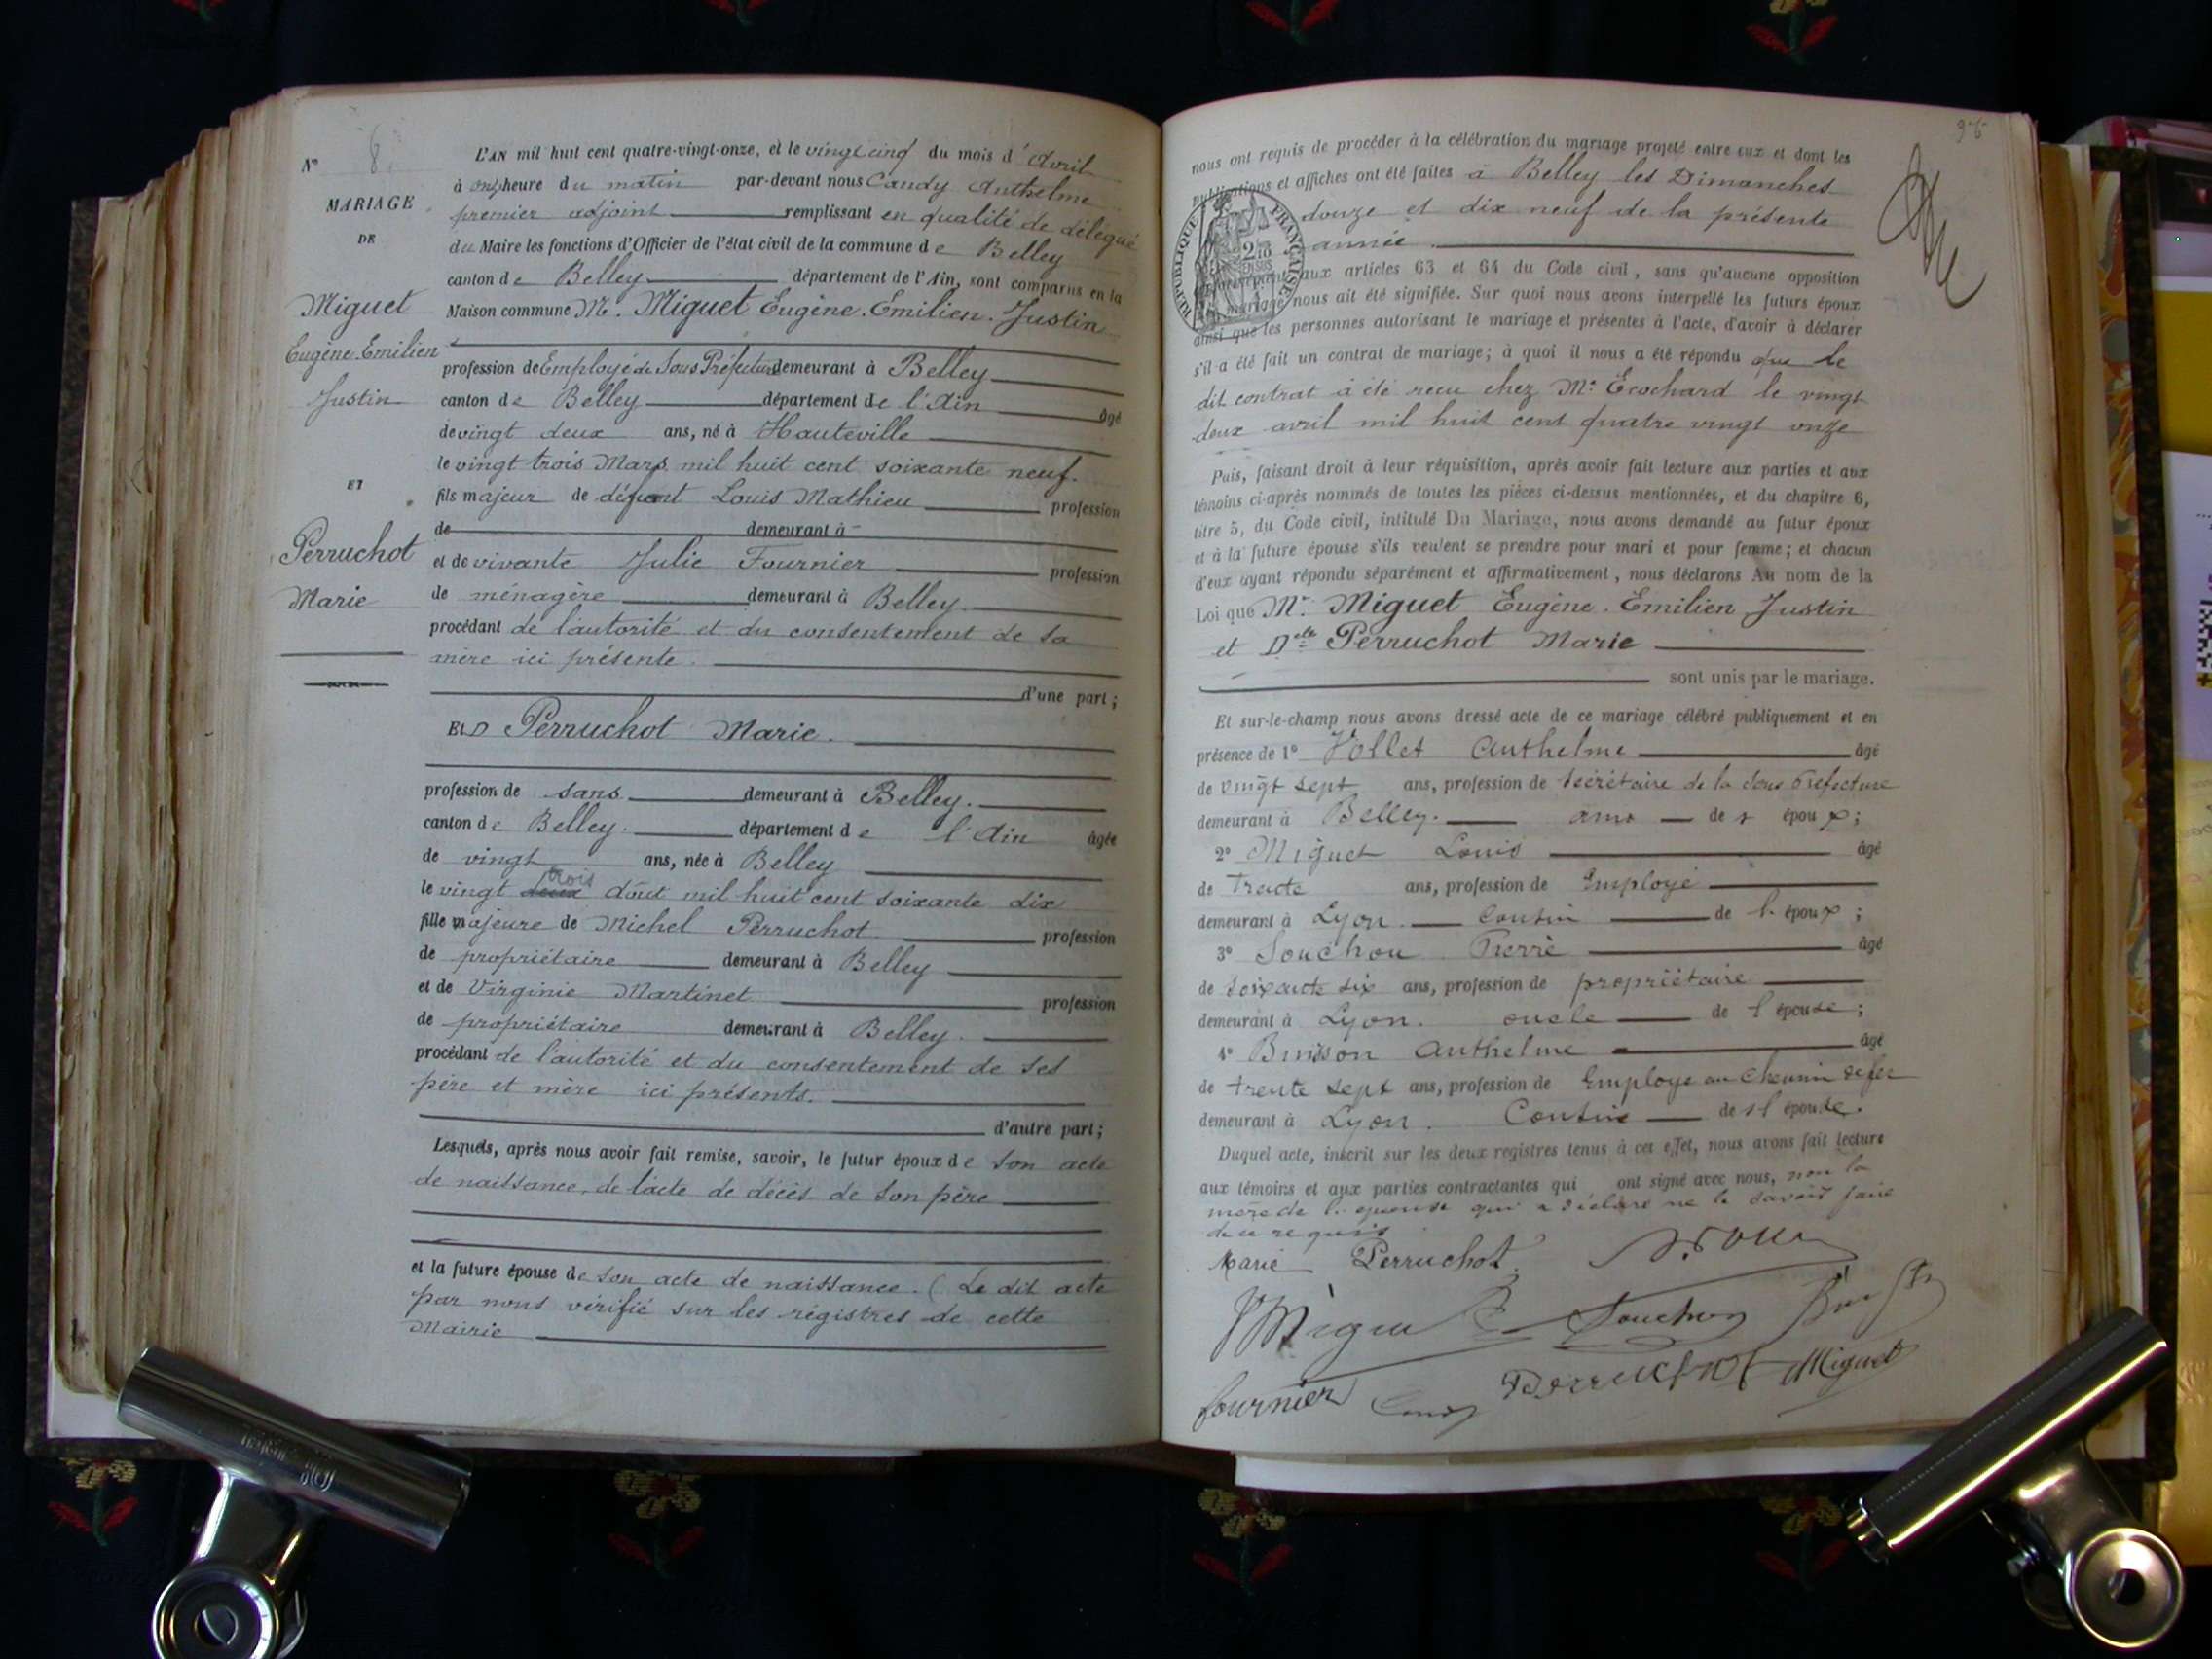 N° 8
MARIAGE
DE
Miguet
Eugène Emilien
Justin
ET
Perruchot
Marie
L'AN mil huit cent quatre-vingt-onze, et le vingt cinq du mois d'Avril
à onze heure du matin par-devant nous Candy Anthelme
premier adjoint remplissant en qualité de délégué
du Maire les fonctions d'Officier de l'état civil de la commune de Belley
canton de Belley département de l'Ain, sont comparus en la
Maison commune Mr. Miguet Eugène. Emilien. Justin
profession de Employé de Sous Préfecture demeurant à Belley
canton de Belley département de l'Ain âgé
de vingt deux ans, né à Hauteville
le vingt trois Mars mil huit cent soixante neuf.
fils majeur de défunt Louis Mathieu profession
de demeurant à
et de vivante Julie Fournier profession
de ménagère demeurant à Belley.
procédant de l'autorité et du consentement de sa
mère ici présente.
d'une part;
Et D Perruchot Marie.
profession de sans demeurant à Belley.
canton de Belley. département de l'Ain âgée
de vingt ans, née à Belley
le vingt deux trois août mil huit cent soixante dix
fille majeure de Michel Perruchot profession
de propriétaire demeurant à Belley
et de Virginie Martinet profession
de propriétaire demeurant à Belley.
procédant de l'autorité et du consentement de ses
père et mère ici présents.
d'autre part;
Lesquels, après nous avoir fait remise, savoir, le futur époux de son acte
de naissance, de l'acte de décès de son père
et la future épouse de son acte de naissance. (Le dit acte
par nous vérifié sur les régistres de cette
Mairie
nous ont requis de procéder à la célébration du mariage projeté entre eux et dont les
publications et affiches ont été faites à Belley les Dimanches
douze et dix neuf de la présente
année.
RÉPUBLIQUE FRANÇAISE
aux articles 63 et 64 du Code civil, sans qu'aucune opposition
mariage nous ait été signifiée. Sur quoi nous avons interpellé les futurs époux
ainsi que les personnes autorisant le mariage et présentes à l'acte, d'avoir à déclarer
s'il a été fait un contrat de mariage; à quoi il nous a été répondu que le
dit contrat à été reçu chez Me Ecochard le vingt
deux avril mil huit cent quatre vingt onze
Puis, faisant droit à leur réquisition, après avoir fait lecture aux parties et aux
témoins ci-après nommés de toutes les pièces ci-dessus mentionnées, et du chapitre 6,
titre 5, du Code civil, intitulé Du Mariage, nous avons demandé au futur époux
et à la future épouse s'ils veulent se prendre pour mari et pour femme; et chacun
d'eux ayant répondu séparément et affirmativement, nous déclarons Au nom de la
Loi que Mr. Miguet Eugène. Emilien Justin
et Delle Perruchot Marie
sont unis par le mariage.
Et sur-le-champ nous avons dressé acte de ce mariage célébré publiquement et en
présence de 1° Vollet Anthelme âgé
de vingt sept ans, profession de secrétaire de la sous Prefecture
demeurant à Belley. ami de l époux;
2° Miguet Louis âgé
de Trente ans, profession de Employé
demeurant à Lyon. Cousin de l'époux;
3° Souchon Pierre âgé
de soixante six ans, profession de propriétaire
demeurant à Lyon. oncle de l épouse;
4° Buisson Anthelme âgé
de trente sept ans, profession de Employe au chemin de fer
demeurant à Lyon. Cousin de l épouse.
Duquel acte, inscrit sur les deux registres tenus à cet effet, nous avons fait lecture
aux témoins et aux parties contractantes qui ont signé avec nous, non la
mère de l'epouse qui a déclaré ne le savoir faire
de ce requis
Marie Perruchot
Miguet Souchon
Fournier Candy Perruchot Miguet